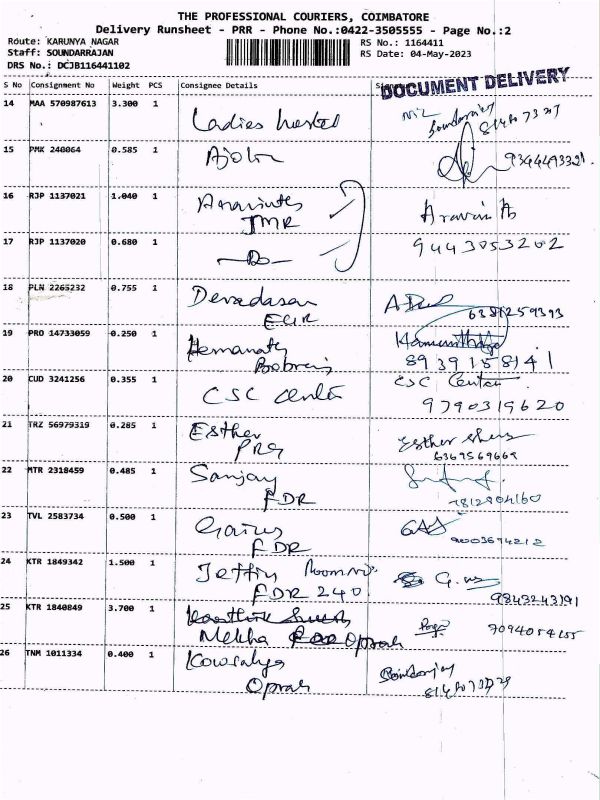 THE PROFESSIONAL COURIERS, COIMBATORE
Delivery Runsheet - PRR - Phone No.:0422-3505555 - Page No.:2
Route: KARUNYA NAGAR RS No.: 1164411
Staff: SOUNDARRAJAN RS Date: 04-May-2023
DRS No.: DCJB116441102
DOCUMENT DELIVERY
S No Consignment No Weight PCS Consignee Details
14 MAA 570987613 3.300 1 Ladies hostel
15 PMK 240064 0.585 1 9344493321
16 RJP 1137021 1.040 1 JMR
17 RJP 1137020 0.680 1 -Do- 9443053202
18 PLN 2265232 0.755 1 Devadasan
6381259393
19 PRO 14733059 0.250 1
8939158141
20 CUD 3241256 0.355 1 CSC Center CSC Center
9790319620
21 TRZ 56979319 0.285 1 Esther Esther
PRG
22 MTR 2318459 0.485 1 Sanjay
FDR
23 TVL 2583734 0.500 1
FDR 9003694212
24 KTR 1849342 1.500 1
FDR 240 9843243191
25 KTR 1840849 3.700 1
Mekha
26 TNM 1011334 0.400 1 Kowsalya